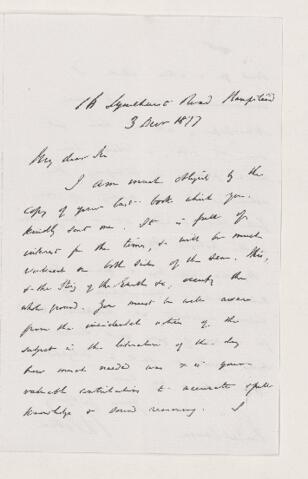 Lyndhurst Road Hampstead
3 Decr 1877
My dear Sir
I am much obliged by the
copy of your last book which you
kindly sent me. It is full of
interest for the times, & will be much
on both sides of the sea. This,
& the of the Earth &c, occupy the
whole ground. You must be well aware
from the incidental notices of the
subject in the literature of the day
how much needed was & is your
valuable contribution to accurate
knowledge & sound reasoning. I